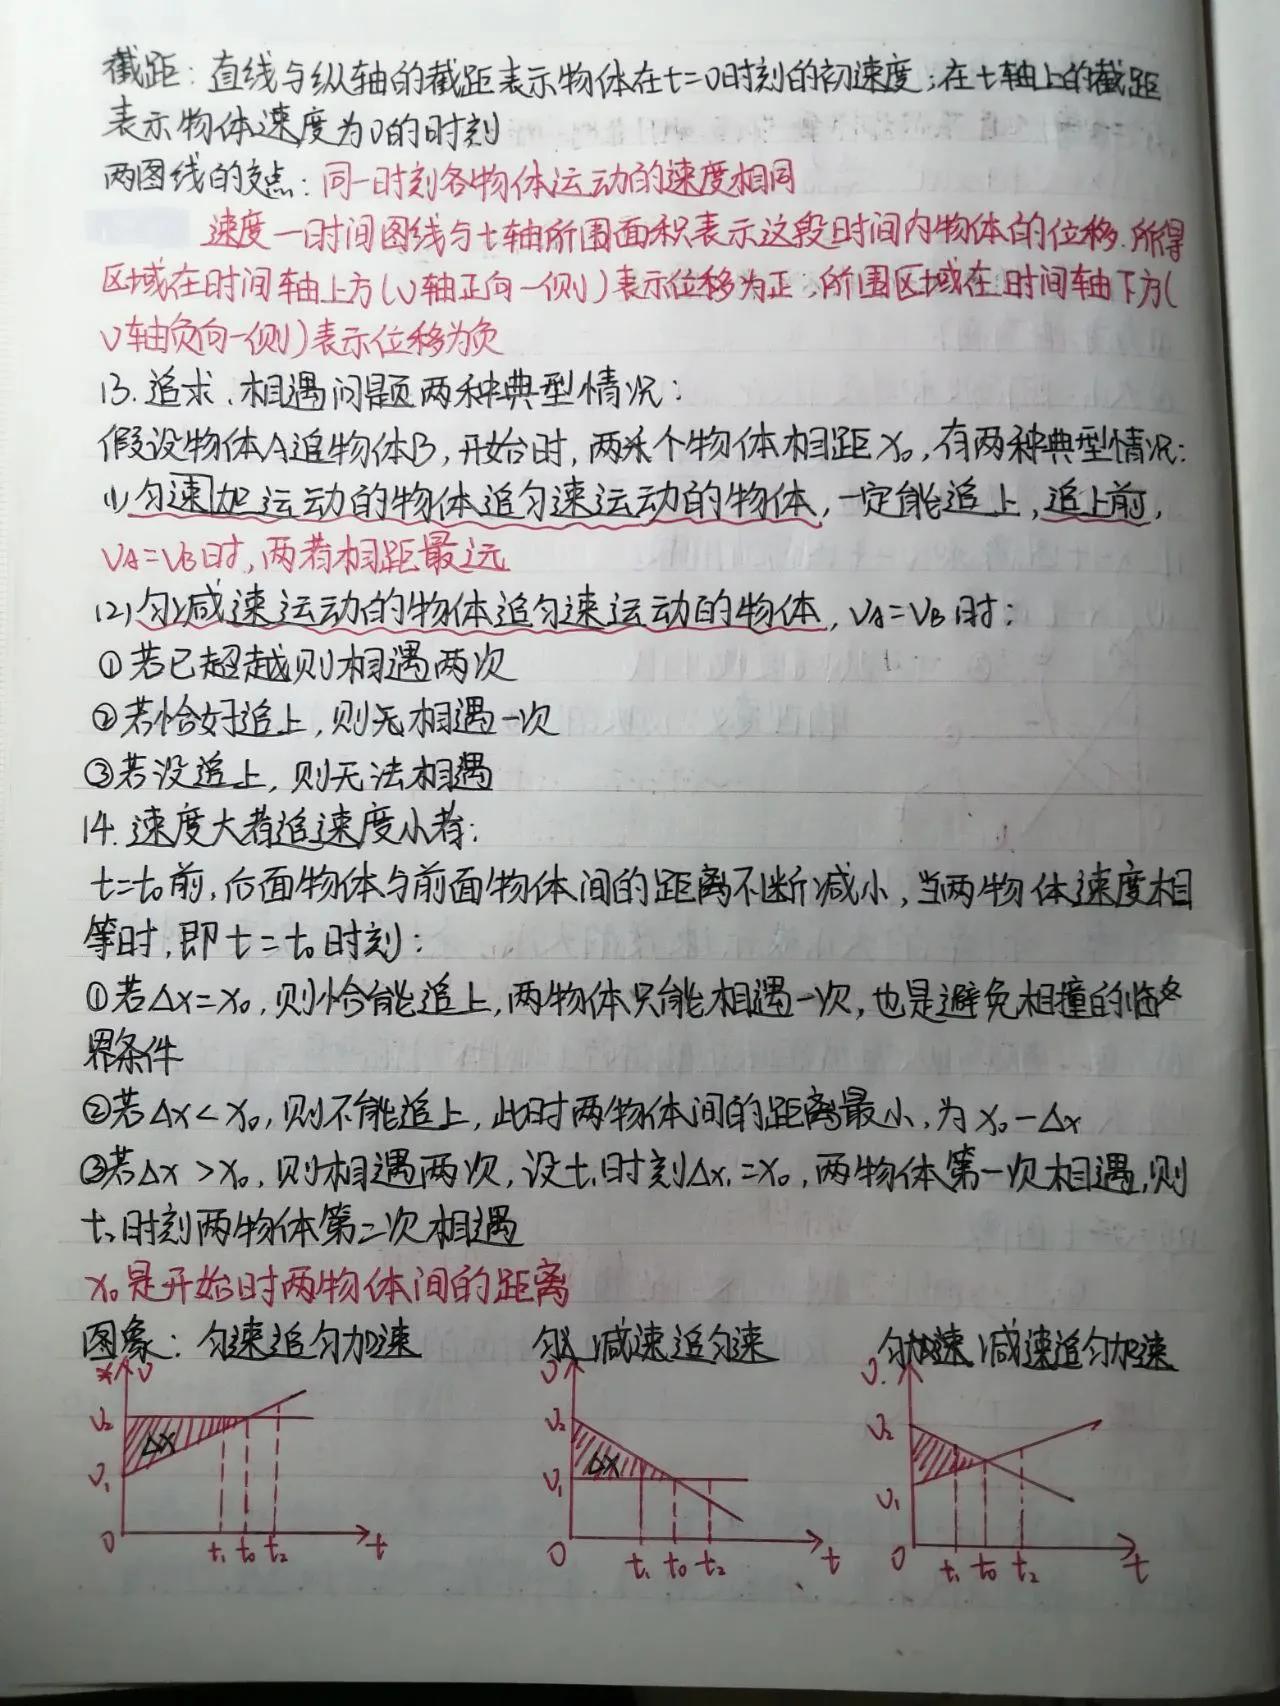 截距：直线与纵轴的截距表示物体在t=0时刻的初速度；在t轴上的截距
表示物体速度为0的时刻
两图线的交点：同一时刻各物体运动的速度相同
速度一时间图线与t轴所围面积表示这段时间内物体的位移.所得
区域在时间轴上方(v轴正向一侧)表示位移为正；所围区域在时间轴下方(
v轴负向一侧)表示位移为负
13.追求、相遇问题两种典型情况：
假设物体A追物体B,开始时,两个物体相距x₀,有两种典型情况：
(1)匀速加运动的物体追匀速运动的物体,一定能追上,追上前,
vA=vB时,两者相距最远
(2)匀减速运动的物体追匀速运动的物体,vA=vB时：
①若已超越则相遇两次
②若恰好追上,则无相遇一次
③若没追上,则无法相遇
14.速度大者追速度小者：
t=t₀前,后面物体与前面物体间的距离不断减小,当两物体速度相
等时,即t=t₀时刻：
①若Δx=x₀,则恰能追上,两物体只能相遇一次,也是避免相撞的临
界条件
②若Δx<x₀,则不能追上,此时两物体间的距离最小,为x₀-Δx
③若Δx>x₀,则相遇两次,设t₁时刻Δx₁=x₀,两物体第一次相遇,则
t₂时刻两物体第二次相遇
x₀是开始时两物体间的距离
图象：匀速追匀加速 匀减速追匀速 匀减速追匀加速
v v v
v₂ v₂ v₂
Δx Δx
v₁ v₁ v₁
0 t₁ t₀ t₂ t 0 t₁ t₀ t₂ t 0 t₁ t₀ t₂ t